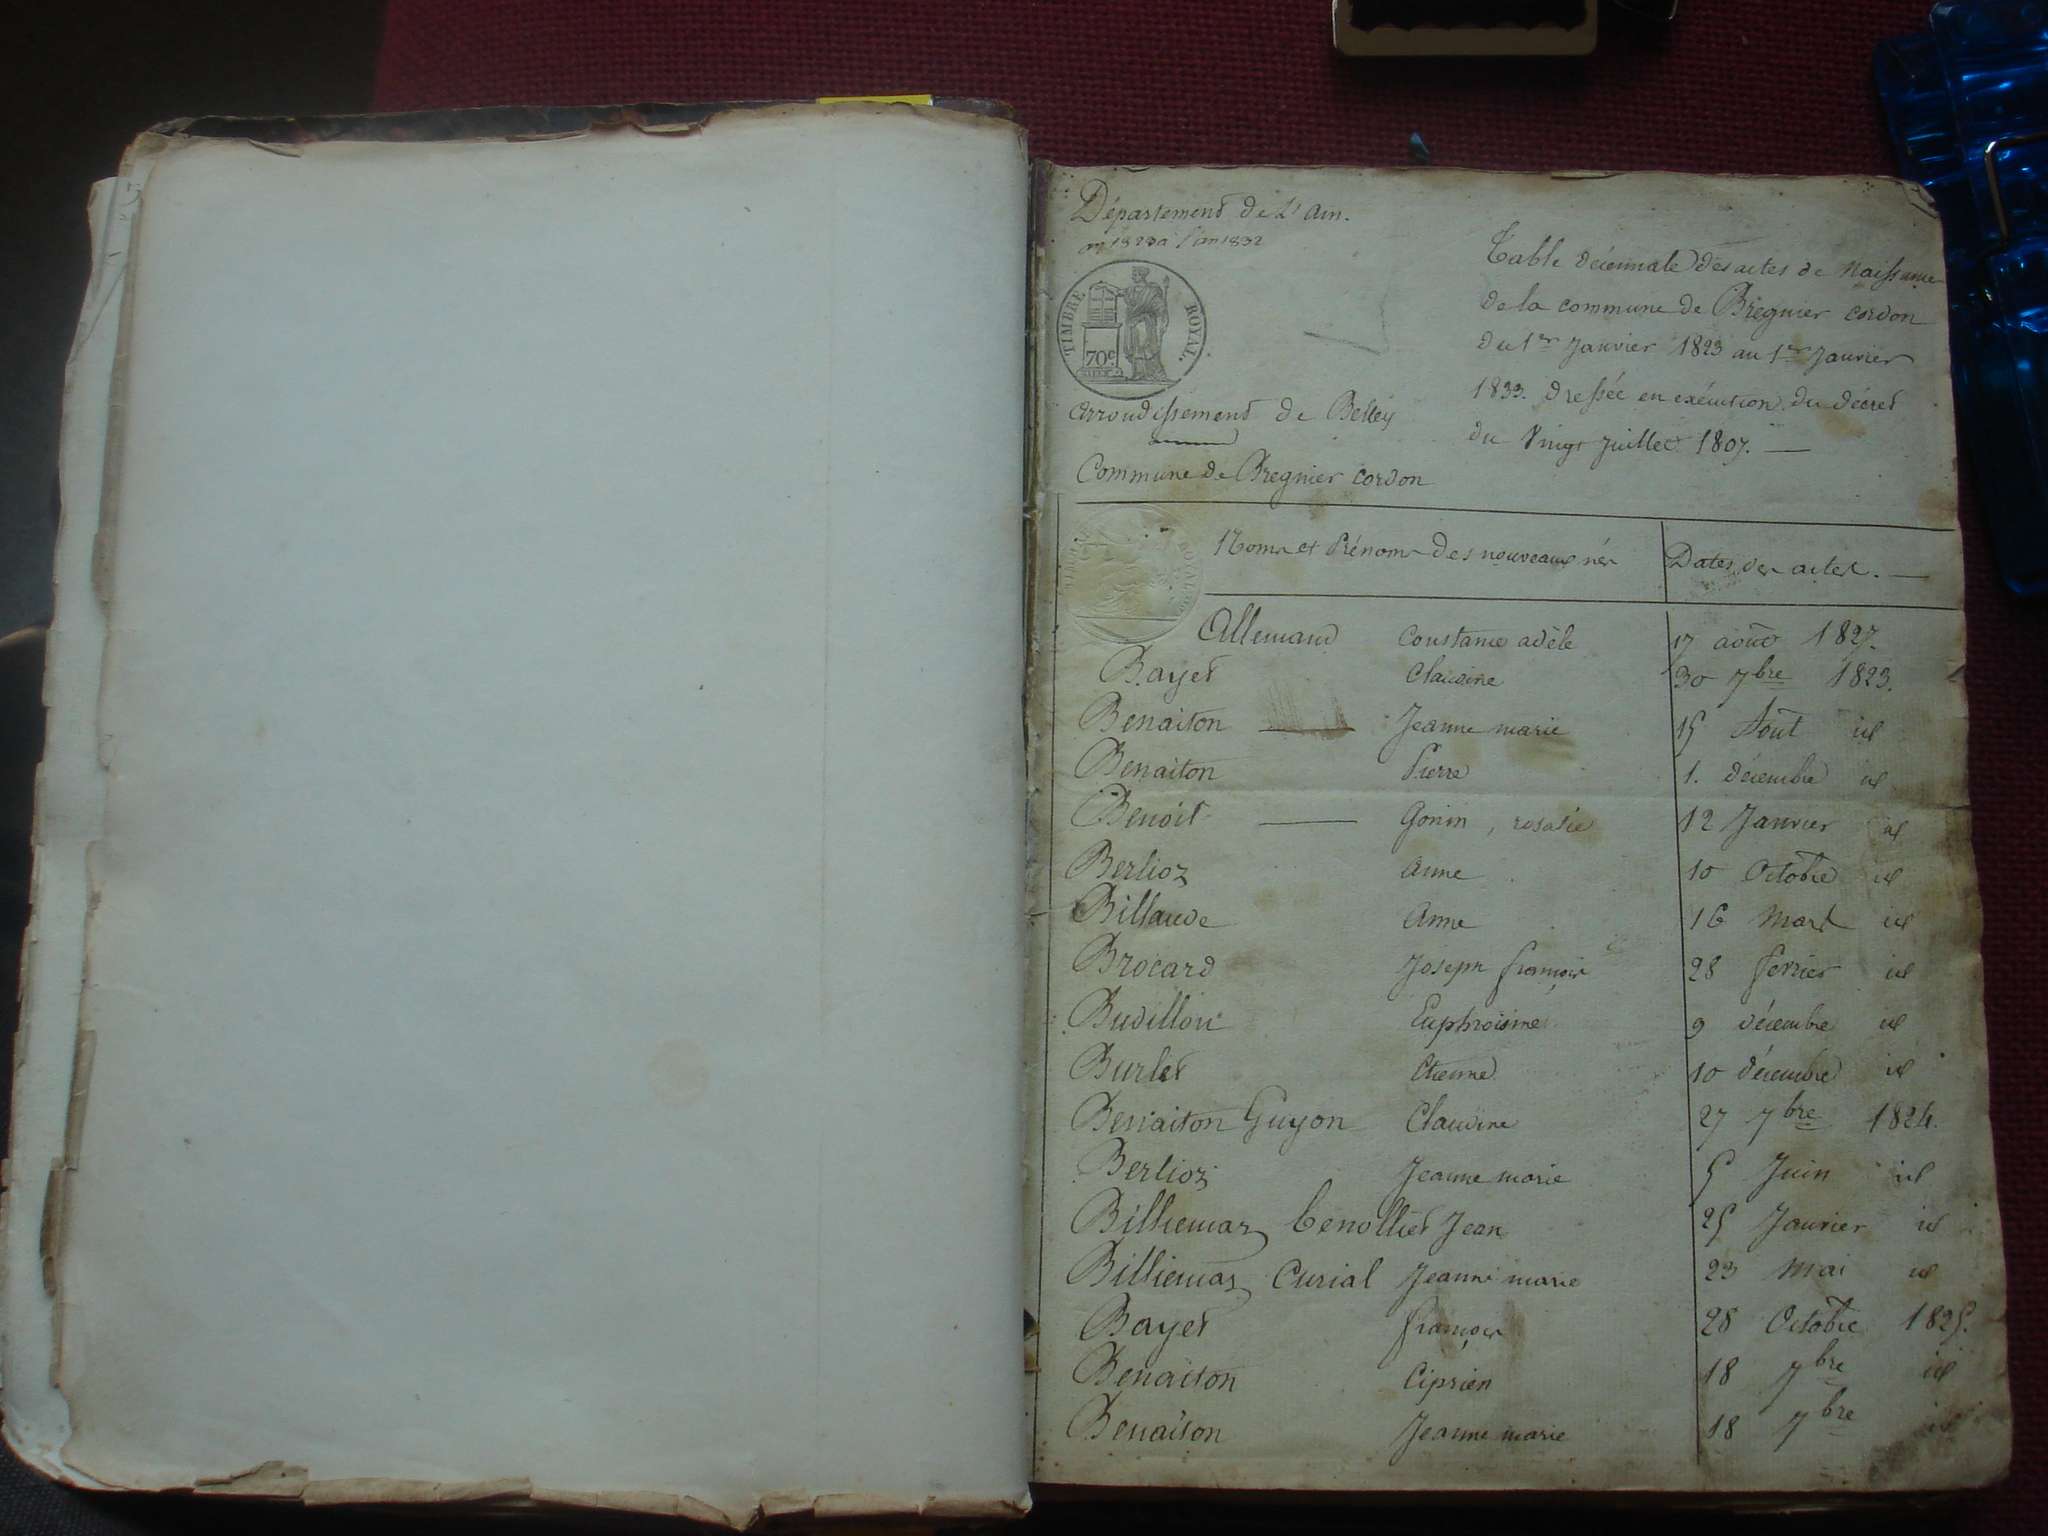 Département de L'ain.
an 1823 a l'an 1832
TIMBRE ROYAL.
70c
arrondissement de Belley
Commune de Bregnier cordon
Table décennale des actes de Naissance
de la commune de Bregnier cordon
du 1er Janvier 1823 au 1er Janvier
1833. dressée en exécution du décret
du Vingt Juillet 1807. —
Noms et Prénoms des nouveaux nés Dates des actes. —
Allemand Constance adèle 17 août 1827.
Bayet Claudine 30 7bre 1823.
Benaiton — Jeanne marie 15 Aout id
Benaiton Pierre 1. décembre id
Benoit — Gonin, rosalie 12 Janvier id
Berlioz anne 10 Octobre id
Billaude Anne 16 Mars id
Brocard Joseph françois 28 fevrier id
Budillon Euphroisine 9 décembre id
Burlet Etienne 10 décembre id
Benaiton Guyon Claudine 27 7bre 1824.
Berlioz Jeanne marie 5 Juin id
Billiemaz benolliet Jean 25 Janvier id
Billiemaz Curial Jeanne marie 23 Mai id
Bayet françois 28 Octobre 1825.
Benaiton Ciprien 18 7bre id
Benaiton Jeanne marie 18 7bre id